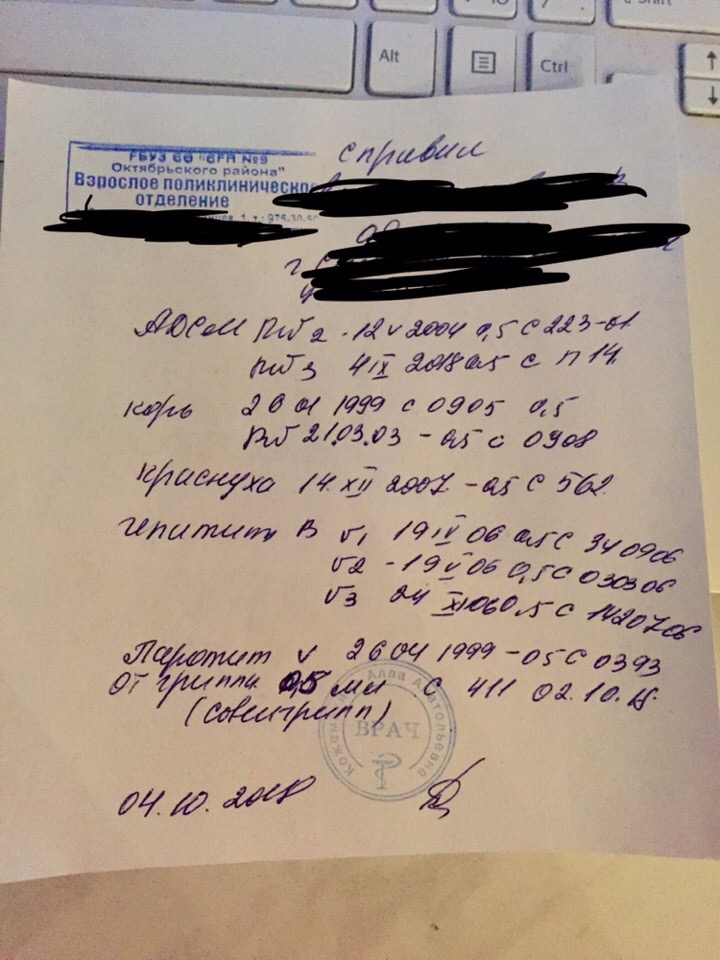 Alt
Ctrl
ГБУЗ СО "СГП №9
Октябрьского района"
Взрослое поликлиническое
отделение
1, т.: 975-30-
справка
АДСМ RW 2 - 12 V 2004 0,5 С 223-01
RW 3 4 IX 2018 0,5 с П 14
корь 26 01 1999 с 0905 0,5
RW 21.03.03 - 0,5 с 0908
Краснуха 14 XII 2007 - 0,5 С 562
гепатит В V1 19 IV 06 0,5 С 340906
V2 - 19 V 06 0,5 С 030306
V3 24 XI 06 0,5 С 1420706
Паротит V 26 04 1999 - 05 С 0393
От гриппа 0,5 мл С 411 02.10.18
(совигрипп)
Алла Анатольевна
ВРАЧ
04.10.2018